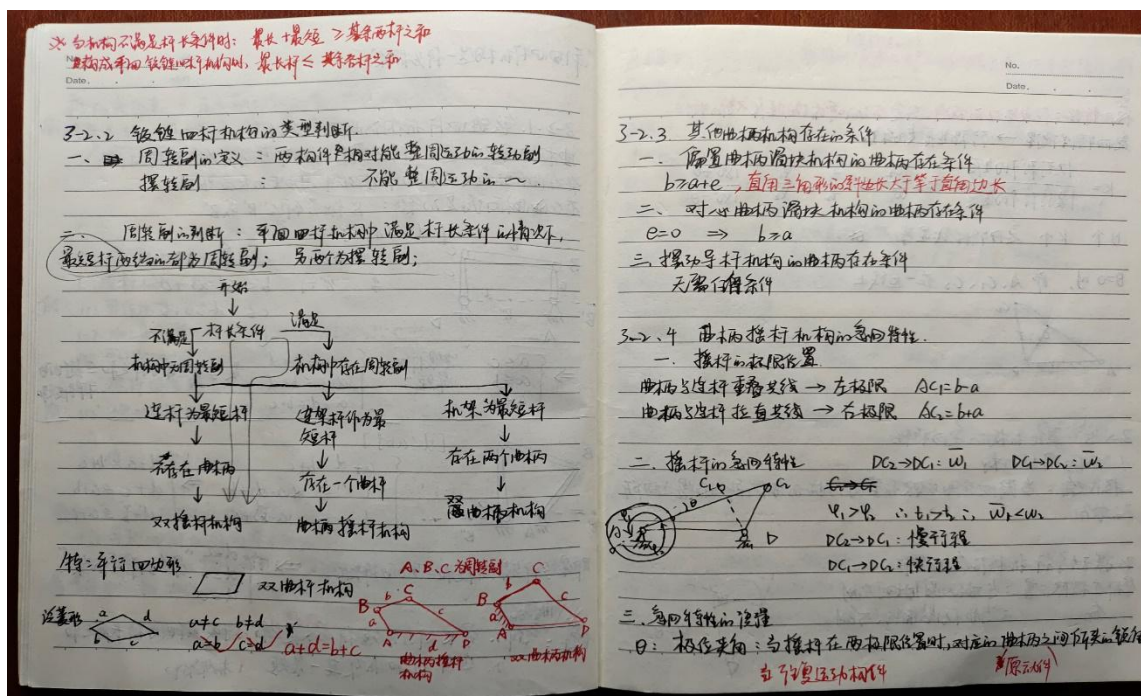 ※ 当机构不满足杆长条件时: 最长+最短 ≥ 其余两杆之和
构成平面铰链四杆机构时, 最长杆 ≤ 其余各杆之和
Date.
3-2.2 铰链四杆机构的类型判断.
一、周转副的定义: 两构件相对能整周运动的转动副
摆转副 : 不能整周运动的~
二、周转副的判断: 平面四杆机构中满足杆长条件的情况下,
最短杆两端的都为周转副; 另两个为摆转副;
开始
不满足 杆长条件 满足
机构中无周转副 机构中存在周转副
连杆为最短杆 连架杆作为最短杆 机架为最短杆
不存在曲柄 存在一个曲杆 存在两个曲柄
双摇杆机构 曲柄摇杆机构 双曲柄机构
特: 平行四边形 双曲杆机构
泛菱形 a d b c
a≠c b≠d
a=b c=d a+d=b+c
A、B、C为周转副
B b C a A d D
曲柄摇杆机构
B b C a A D
双曲柄机构
No.
Date.
3-2.3 其他曲柄机构存在的条件
一、偏置曲柄滑块机构的曲柄存在条件
b≥a+e ,直角三角形的斜边长大于等于直角边长
二、对心曲柄滑块机构的曲柄存在条件
e=0 ⇒ b≥a
三、摆动导杆机构的曲柄存在条件
无需任何条件
3-2.4 曲柄摇杆机构的急回特性.
一、摇杆的极限位置
曲柄与连杆重叠共线 → 左极限 AC₁=b-a
曲柄与连杆拉直共线 → 右极限 AC₂=b+a
二、摇杆的急回特性 DC₂→DC₁: w̄₁ DC₁→DC₂: w̄₂
C₁ C₂ θ D
φ₁>φ₂ ∴ t₁>t₂ ∴ w̄₁<w̄₂
DC₂→DC₁: 慢行程
DC₁→DC₂: 快行程
三、急回特性的原理
θ: 极位夹角: 当摇杆在两极限位置时,对应的曲柄之间所夹的锐角
往复运动构件
原动件